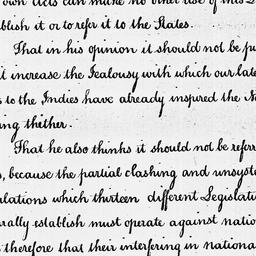 own Acts can make no other use of this
blish it or to refer it to the States.
That in his opinion it should not be pu
it increase the Jealousy with which our late
s to the Indies have already inspired the N
ing thither.
That he also thinks it should not be referr
s, because the partial clashing and unsyste
ulations which thirteen different Legislatu
rally establish must operate against natio
therefore that their interfering in nationa